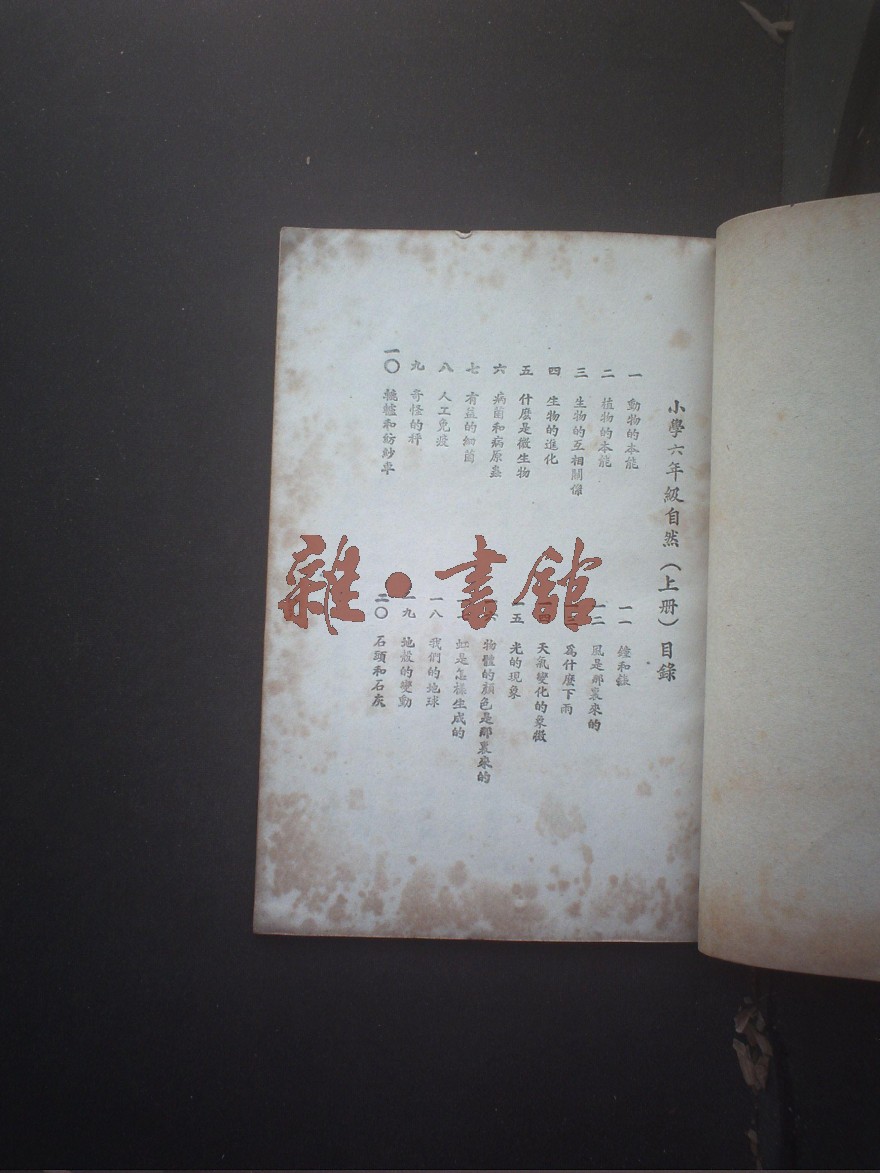 小學六年級自然（上册）目錄
一 動物的本能
二 植物的本能
三 生物的互相關係
四 生物的進化
五 什麼是微生物
六 病菌和病原蟲
七 有益的細菌
八 人工免疫
九 奇怪的秤
一〇 轆轤和紡紗車
一一 鐘和錶
一二 風是那裏來的
一三 爲什麼下雨
一四 天氣變化的象徵
一五 光的現象
一六 物體的顏色是那裏來的
一七 虹是怎樣生成的
一八 我們的地球
一九 地殼的變動
二〇 石頭和石灰
雜·書館